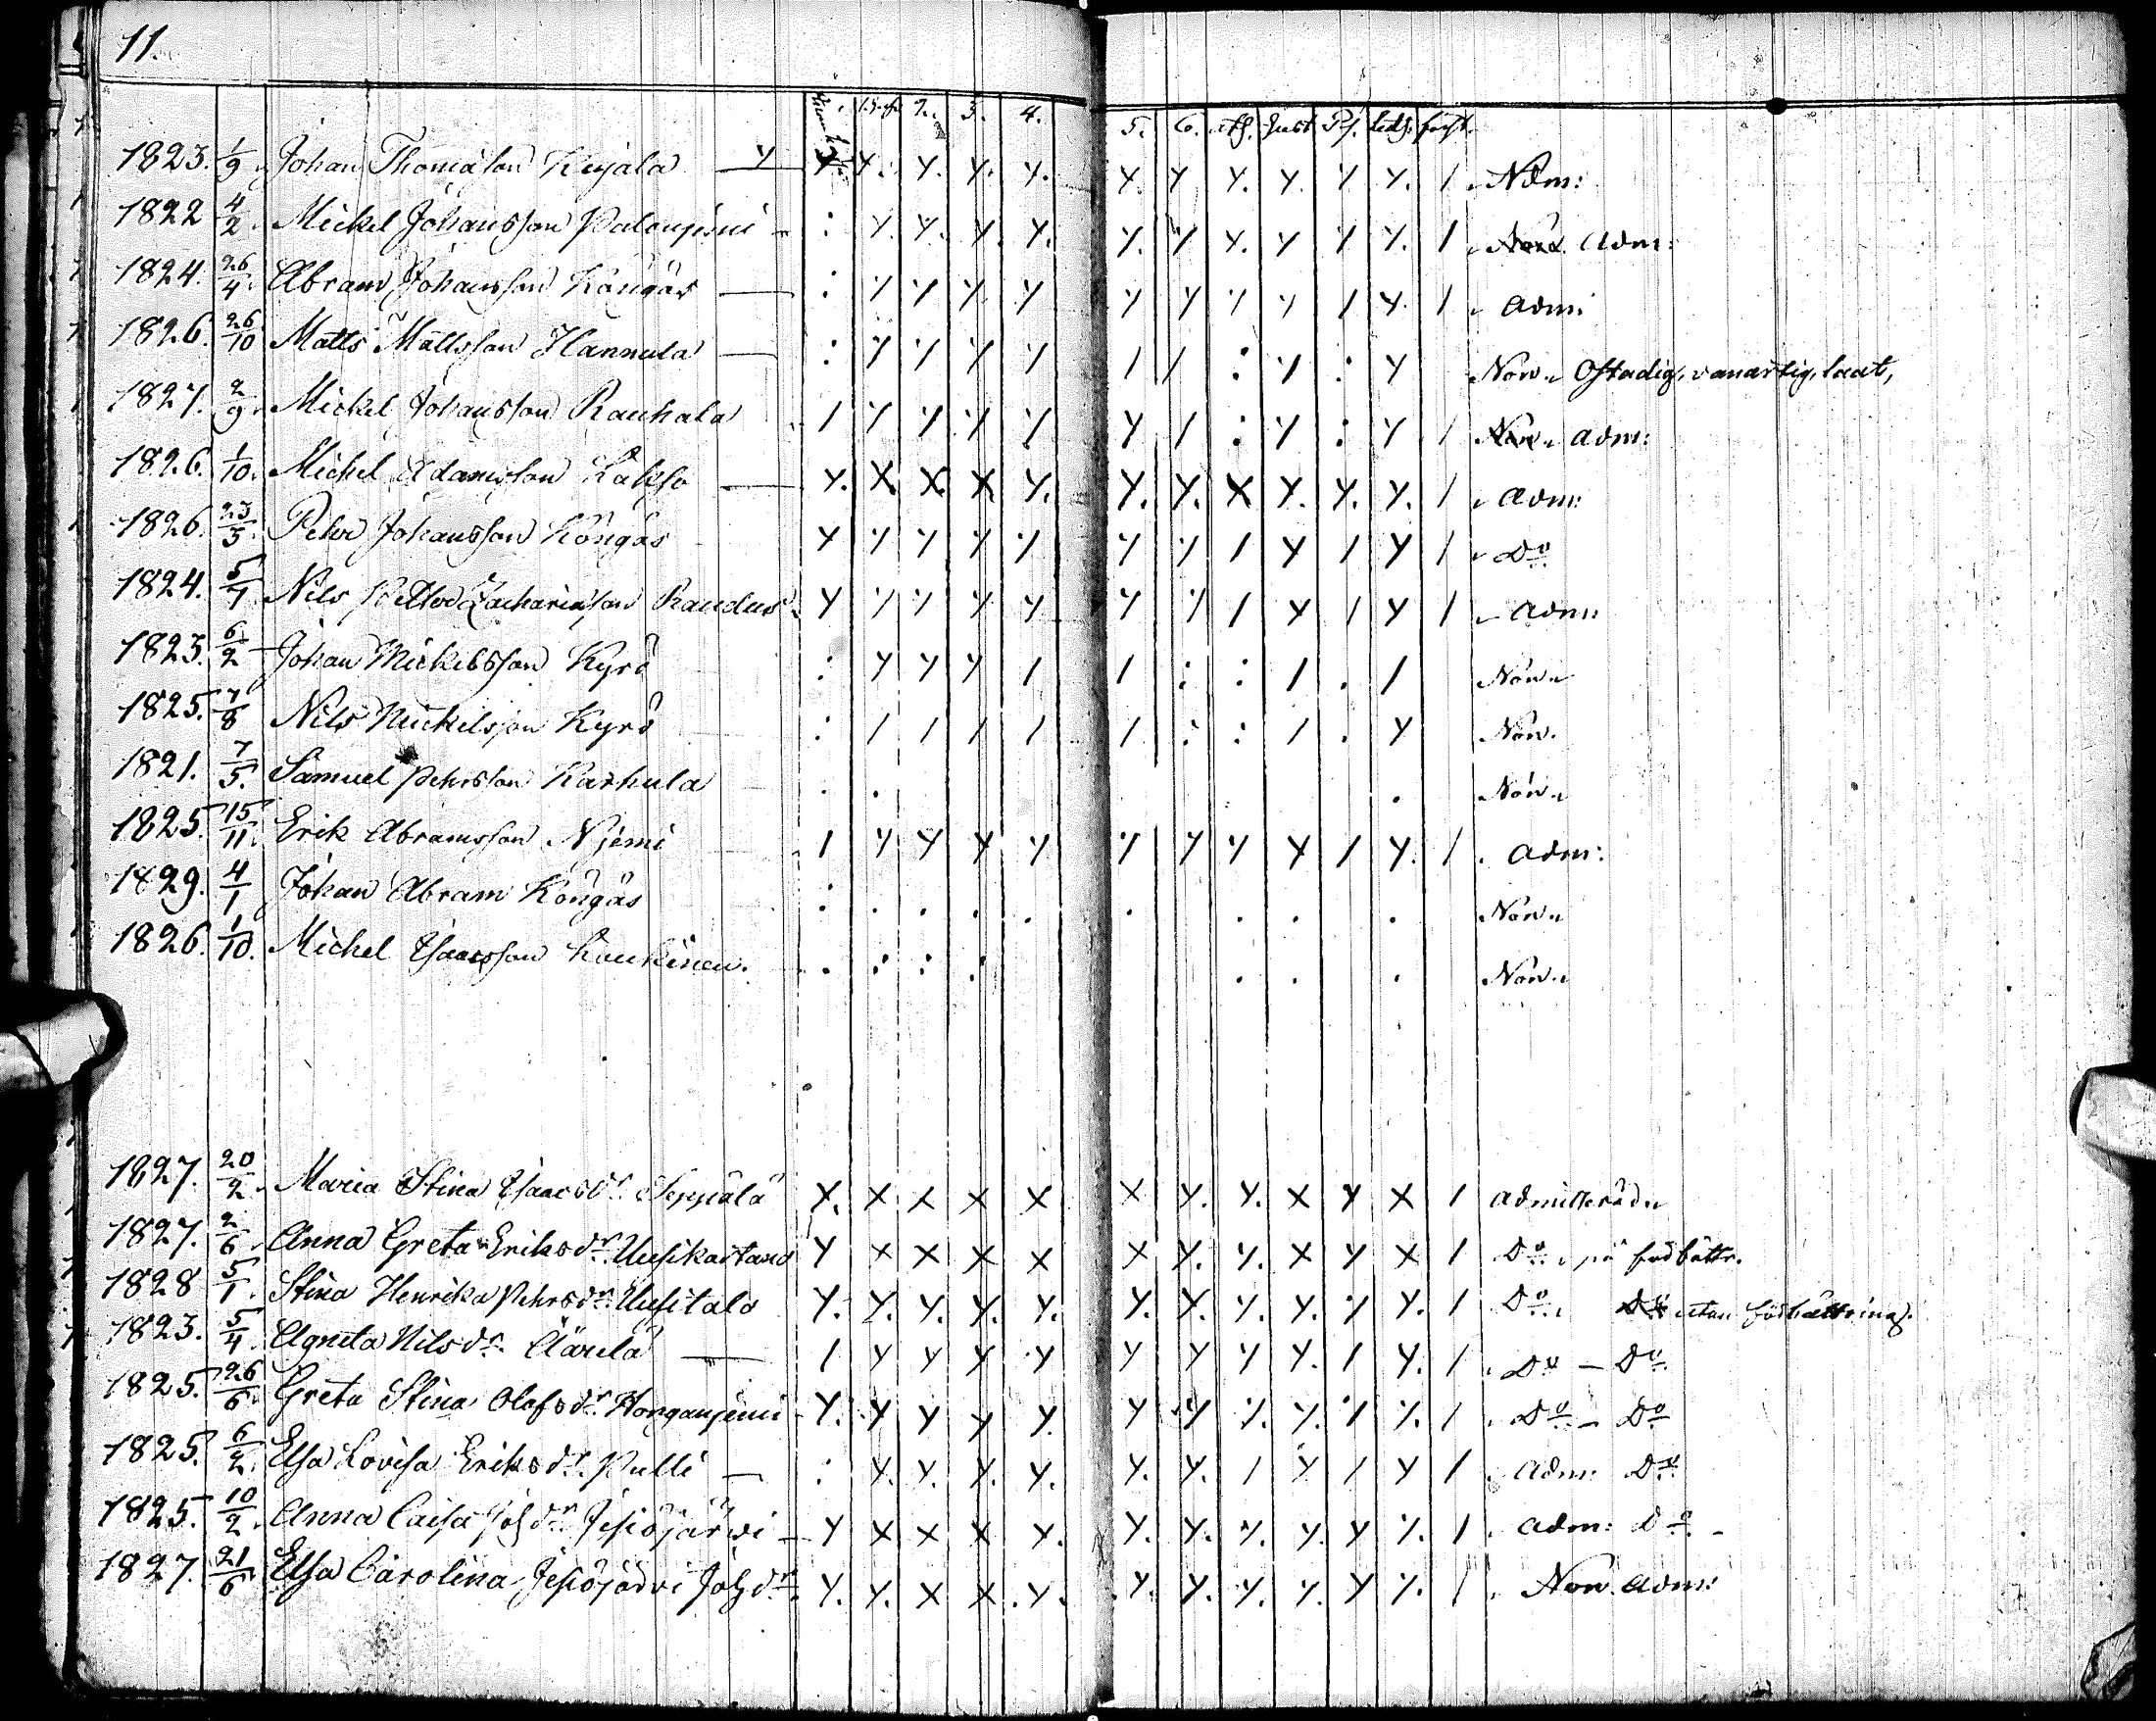 11.
1. 2. 3. 4. 5. 6. Ath. Just. Ps. förh.
1823. 1/9. Johan Thomasson Keyälä Y Y. Y. Y. Y. Y. Y. Y Y. Y. Y Y. 1 Adm:
1822 4/2. Mickel Johansson Palonjemi : Y. Y. Y. Y. Y. Y Y. Y Y Y. 1 Adm:
1824. 26/4. Abram Johansson Köngäs : Y Y Y. Y Y Y Y Y 1 Y. 1 Adm:
1826. 26/10 Matts Mattsson Hannula : Y Y Y Y 1 1 : Y : Y Non. Ostadig, vanartig, laat,
1827. 2/9. Mickel Johansson Rauhala 1 Y Y Y Y Y 1 : Y : Y 1 Non. Adm:
1826. 1/10. Michel Adamsson Lakso Y. X. X. X Y. Y. Y. X Y. Y. Y. 1 Adm:
1826. 23/5. Pehr Johansson Köngäs Y Y Y Y Y Y Y 1 Y 1 Y 1 Do
1824. 5/7 Nils Petter Zachariasson Raudus Y Y Y Y Y Y Y 1 Y 1 Y 1 Adm:
1823. 6/2 Johan Mickelsson Kyrö : Y Y Y 1 1 : : 1 . 1 Non.
1825. 7/8 Nils Mickelsson Kyrö : 1 1 1 1 1 : : 1 . Y Non.
1821. 7/5. Samuel Pehrsson Karhula . . . Non.
1825. 15/11. Erik Abramsson Njemi 1 Y Y Y Y Y Y Y Y 1 Y. 1 Adm:
1829. 4/1 Johan Abram Köngäs : . . . . . . . . Non.
1826. 1/10. Michel Isaacsson Kaukinen. . : : : . . . Non.
1827. 20/2. Maria Stina Isaacsdr Seppälä X. X X X X X Y. Y. X Y X 1 Admitterad.
1827. 2/6. Anna Greta Eriksdr Uusikaitano Y X X X X X Y. Y. X Y X 1 Do på förbättr.
1828 5/1. Stina Henrika Pehrsdr Uusitalo Y. Y. Y. Y. Y. Y. Y. Y. Y. Y Y. 1 Do utan förbättring.
1823. 5/4. Agneta Nilsdr Äärelä 1 Y Y Y Y Y Y Y Y. 1 Y. 1 Do — Do
1825. 26/6. Greta Stina Olofsdr Honganjemi Y. Y Y Y Y. Y Y Y. Y. Y Y. 1 Do — Do
1825. 6/2. Elsa Lovisa Eriksdr Pulli : Y. Y. Y. Y. Y. Y. 1 Y 1 Y 1 Adm: Do
1825. 10/2. Anna Caisa Johdr Jesiöjärvi Y X X X Y. Y. Y. Y. Y. Y Y. 1 Adm: Do
1827. 21/6 Elsa Carolina Jesiöjärvi Johdr. Y. Y. X X Y. Y. Y. Y. Y. Y Y. 1 Non. Adm: